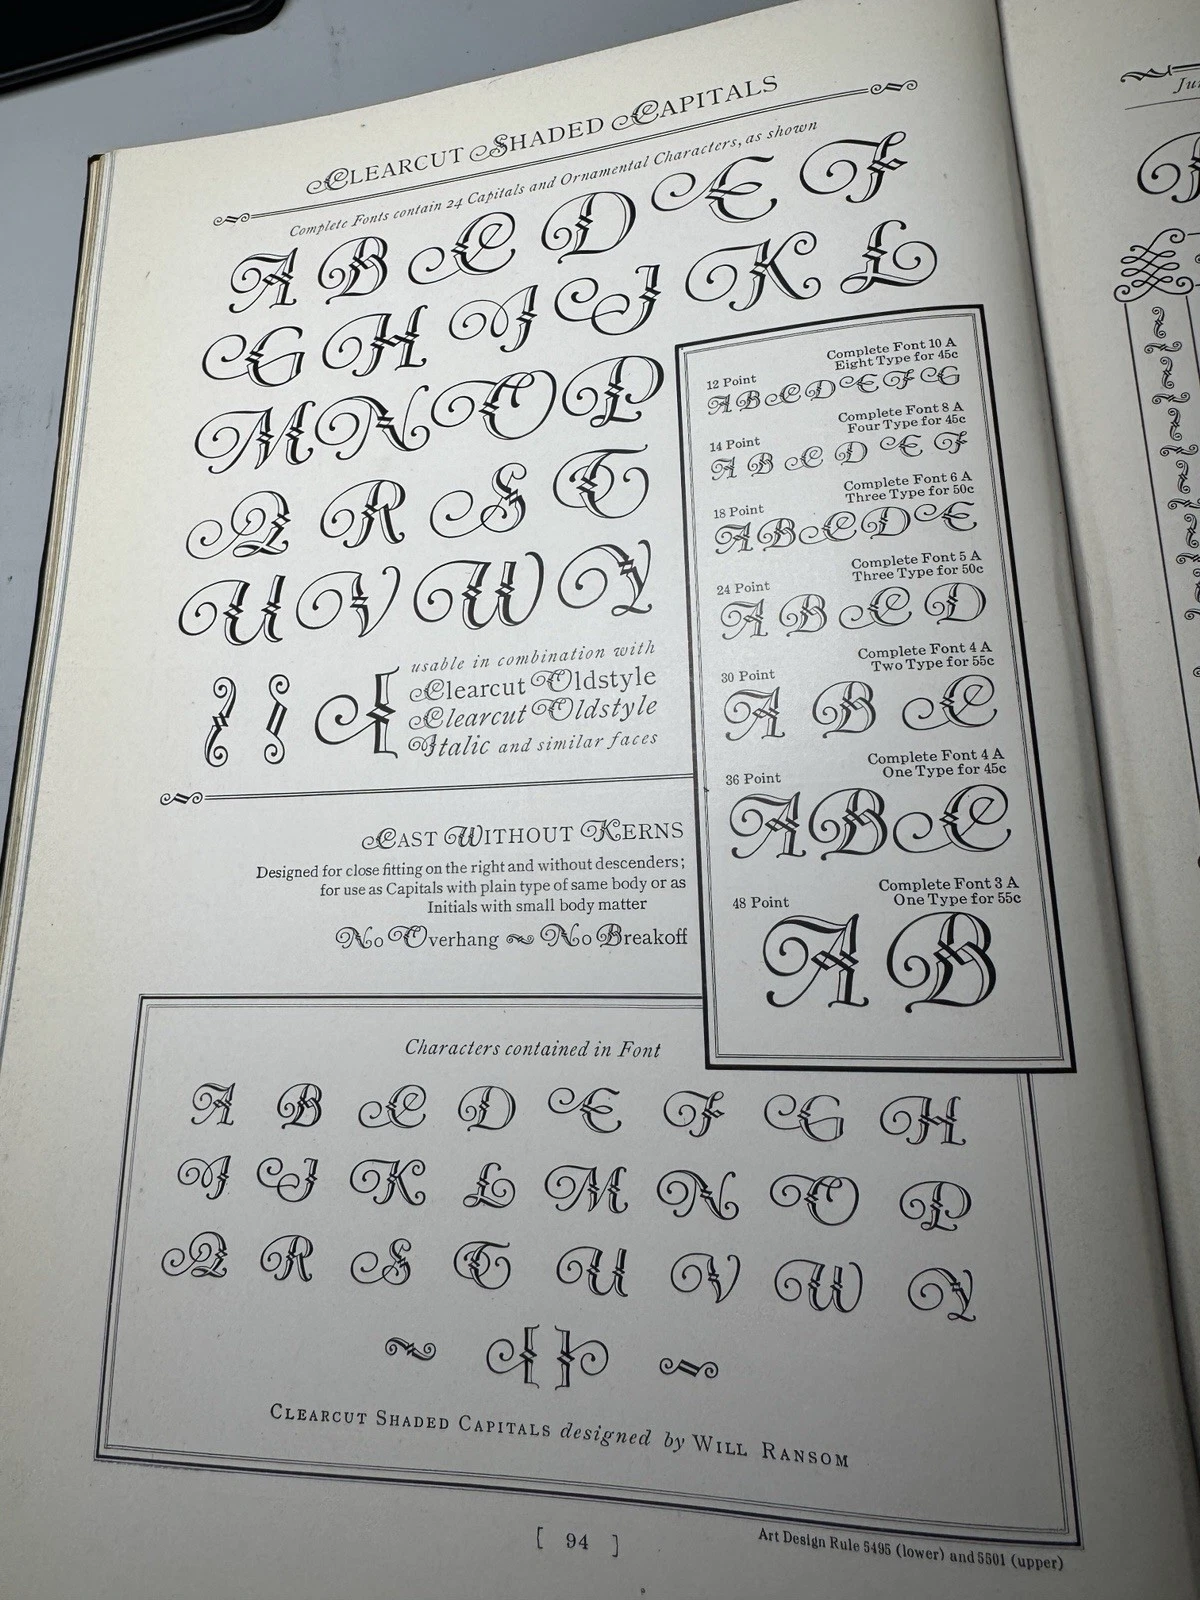 CLEARCUT SHADED CAPITALS
Complete Fonts contain 24 Capitals and Ornamental Characters, as shown
A B C D E F
G H I J K L
M N O P
Q R S T
U V W Y
usable in combination with
Clearcut Oldstyle
Clearcut Oldstyle
Italic and similar faces
CAST WITHOUT KERNS
Designed for close fitting on the right and without descenders;
for use as Capitals with plain type of same body or as
Initials with small body matter
No Overhang No Breakoff
Complete Font 10 A
12 Point Eight Type for 45c
A B C D E F G
Complete Font 8 A
14 Point Four Type for 45c
A B C D E F
Complete Font 6 A
18 Point Three Type for 50c
A B C D E
Complete Font 5 A
24 Point Three Type for 50c
A B C D
Complete Font 4 A
30 Point Two Type for 55c
A B C
Complete Font 4 A
36 Point One Type for 45c
A B C
Complete Font 3 A
48 Point One Type for 55c
A B
Characters contained in Font
A B C D E F G H
I J K L M N O P
Q R S T U V W Y
CLEARCUT SHADED CAPITALS designed by WILL RANSOM
[ 94 ]
Art Design Rule 5495 (lower) and 5501 (upper)